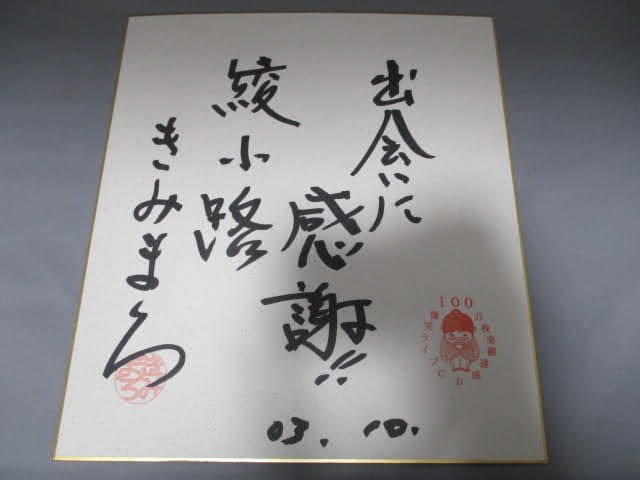 出会いに
感謝!!
綾小路
きみまろ
03.10.
100万枚突破達成
爆笑ライブCD